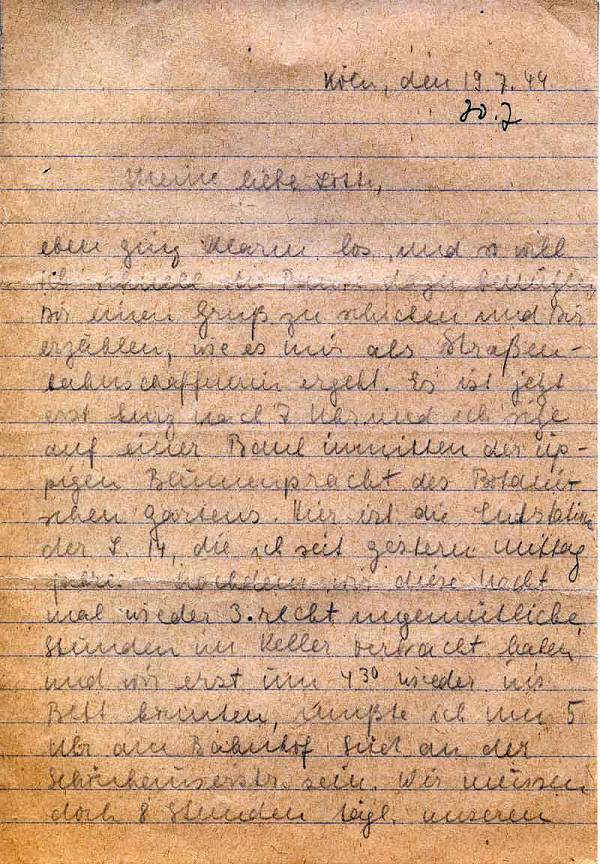 Köln, den 19.7.44
20.7
Meine liebe Lotte,
eben ging Alarm los, und so will
ich schnell die Pause dazu benützen,
Dir einen Gruß zu schicken und Dir
erzählen, wie es mir als Straßen-
bahnschaffnerin ergeht. Es ist jetzt
erst kurz nach 7 Uhr und ich sitze
auf einer Bank inmitten der üp-
pigen Blumenpracht des Botani-
schen Gartens. Hier ist die Endstation
der L. 14, die ich seit gestern Mittag
fahre. - Nachdem wir diese Nacht
mal wieder 3 recht ungemütliche
Stunden im Keller verbracht haben
und wir erst um 4 30 wieder ins
Bett konnten, mußte ich um 5
Uhr am Bahnhof Süd an der
sein. Wir müssen
doch 8 Stunden tägl. unseren